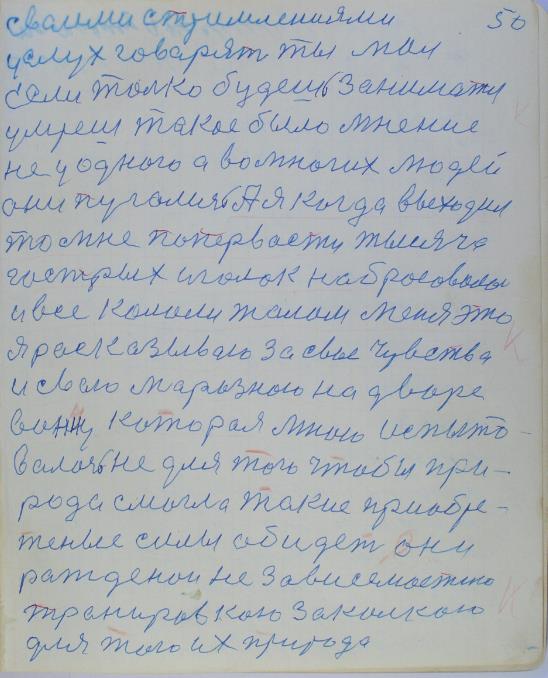 своими стримлениями 50
услух говарят ты мол
если толко будеш Занимати
умреш такое было мнение
не у одного а вомногих людей
они пугались А я когда выходил
то мне поперваости тысяча
гострых иголок набросовалось
и все кололи жалом меня это
я расказываю за свое чувства
и сваю марозною на дворе
ванну которая мною испыто-
валась не для того чтобы при-
рода смогла такие приобре-
теные силы обидет они
ражденои не Зависемостию
транировкою Закалкою
для того их природа